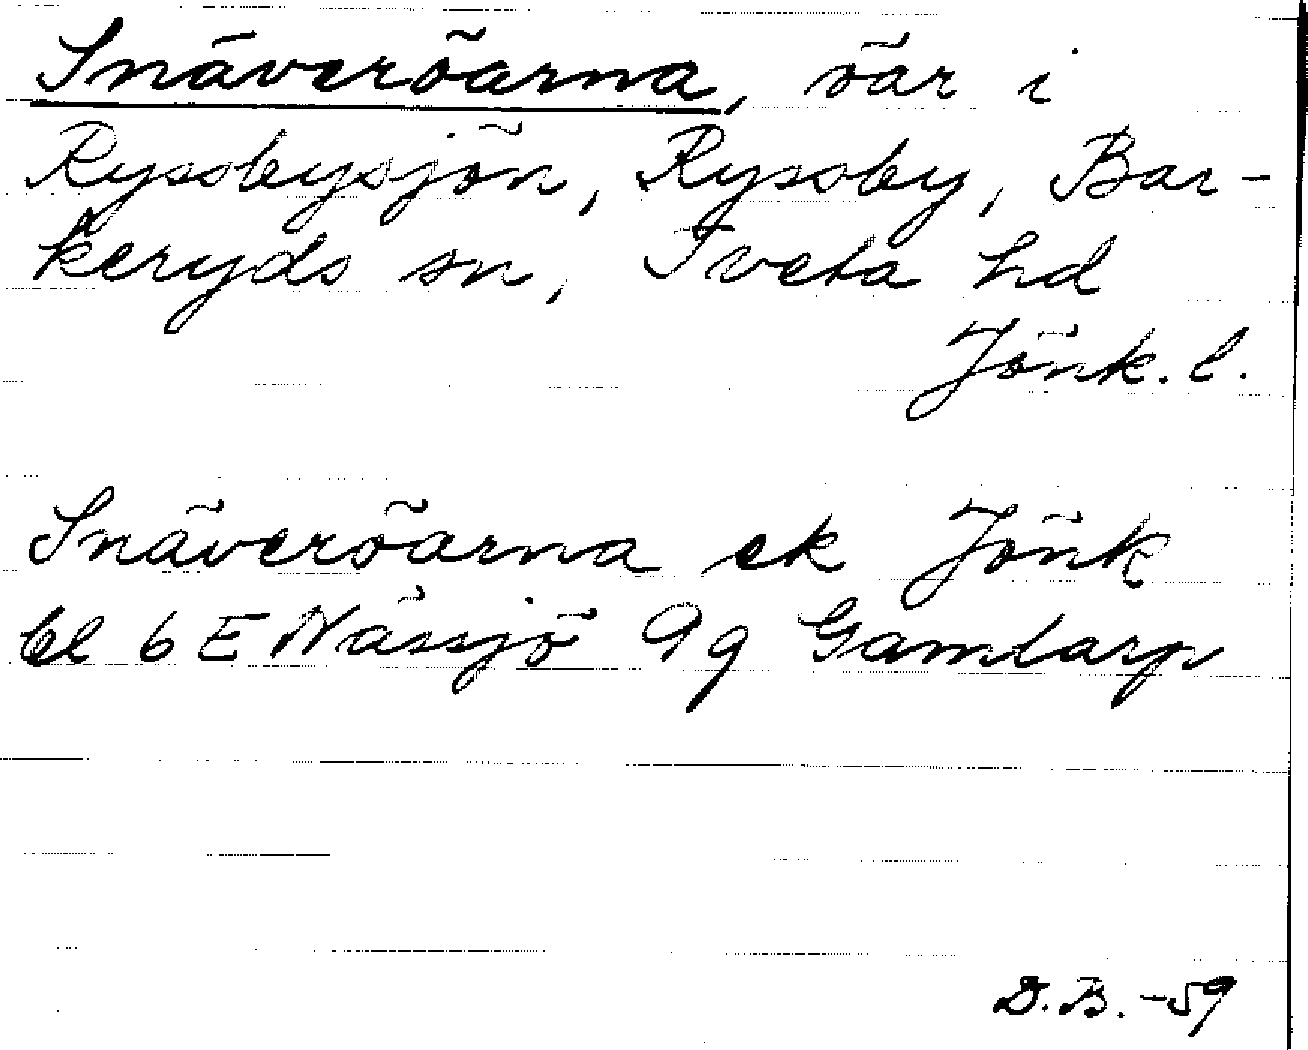 Snäveröarna, öar i
Ryssbysjön, Ryssby, Bar-
keryds sn, Tveta hd
Jönk. l.
Snäveröarna ek Jönk
bl 6 E Nässjö 9 g Gamlarp
D.B. -59